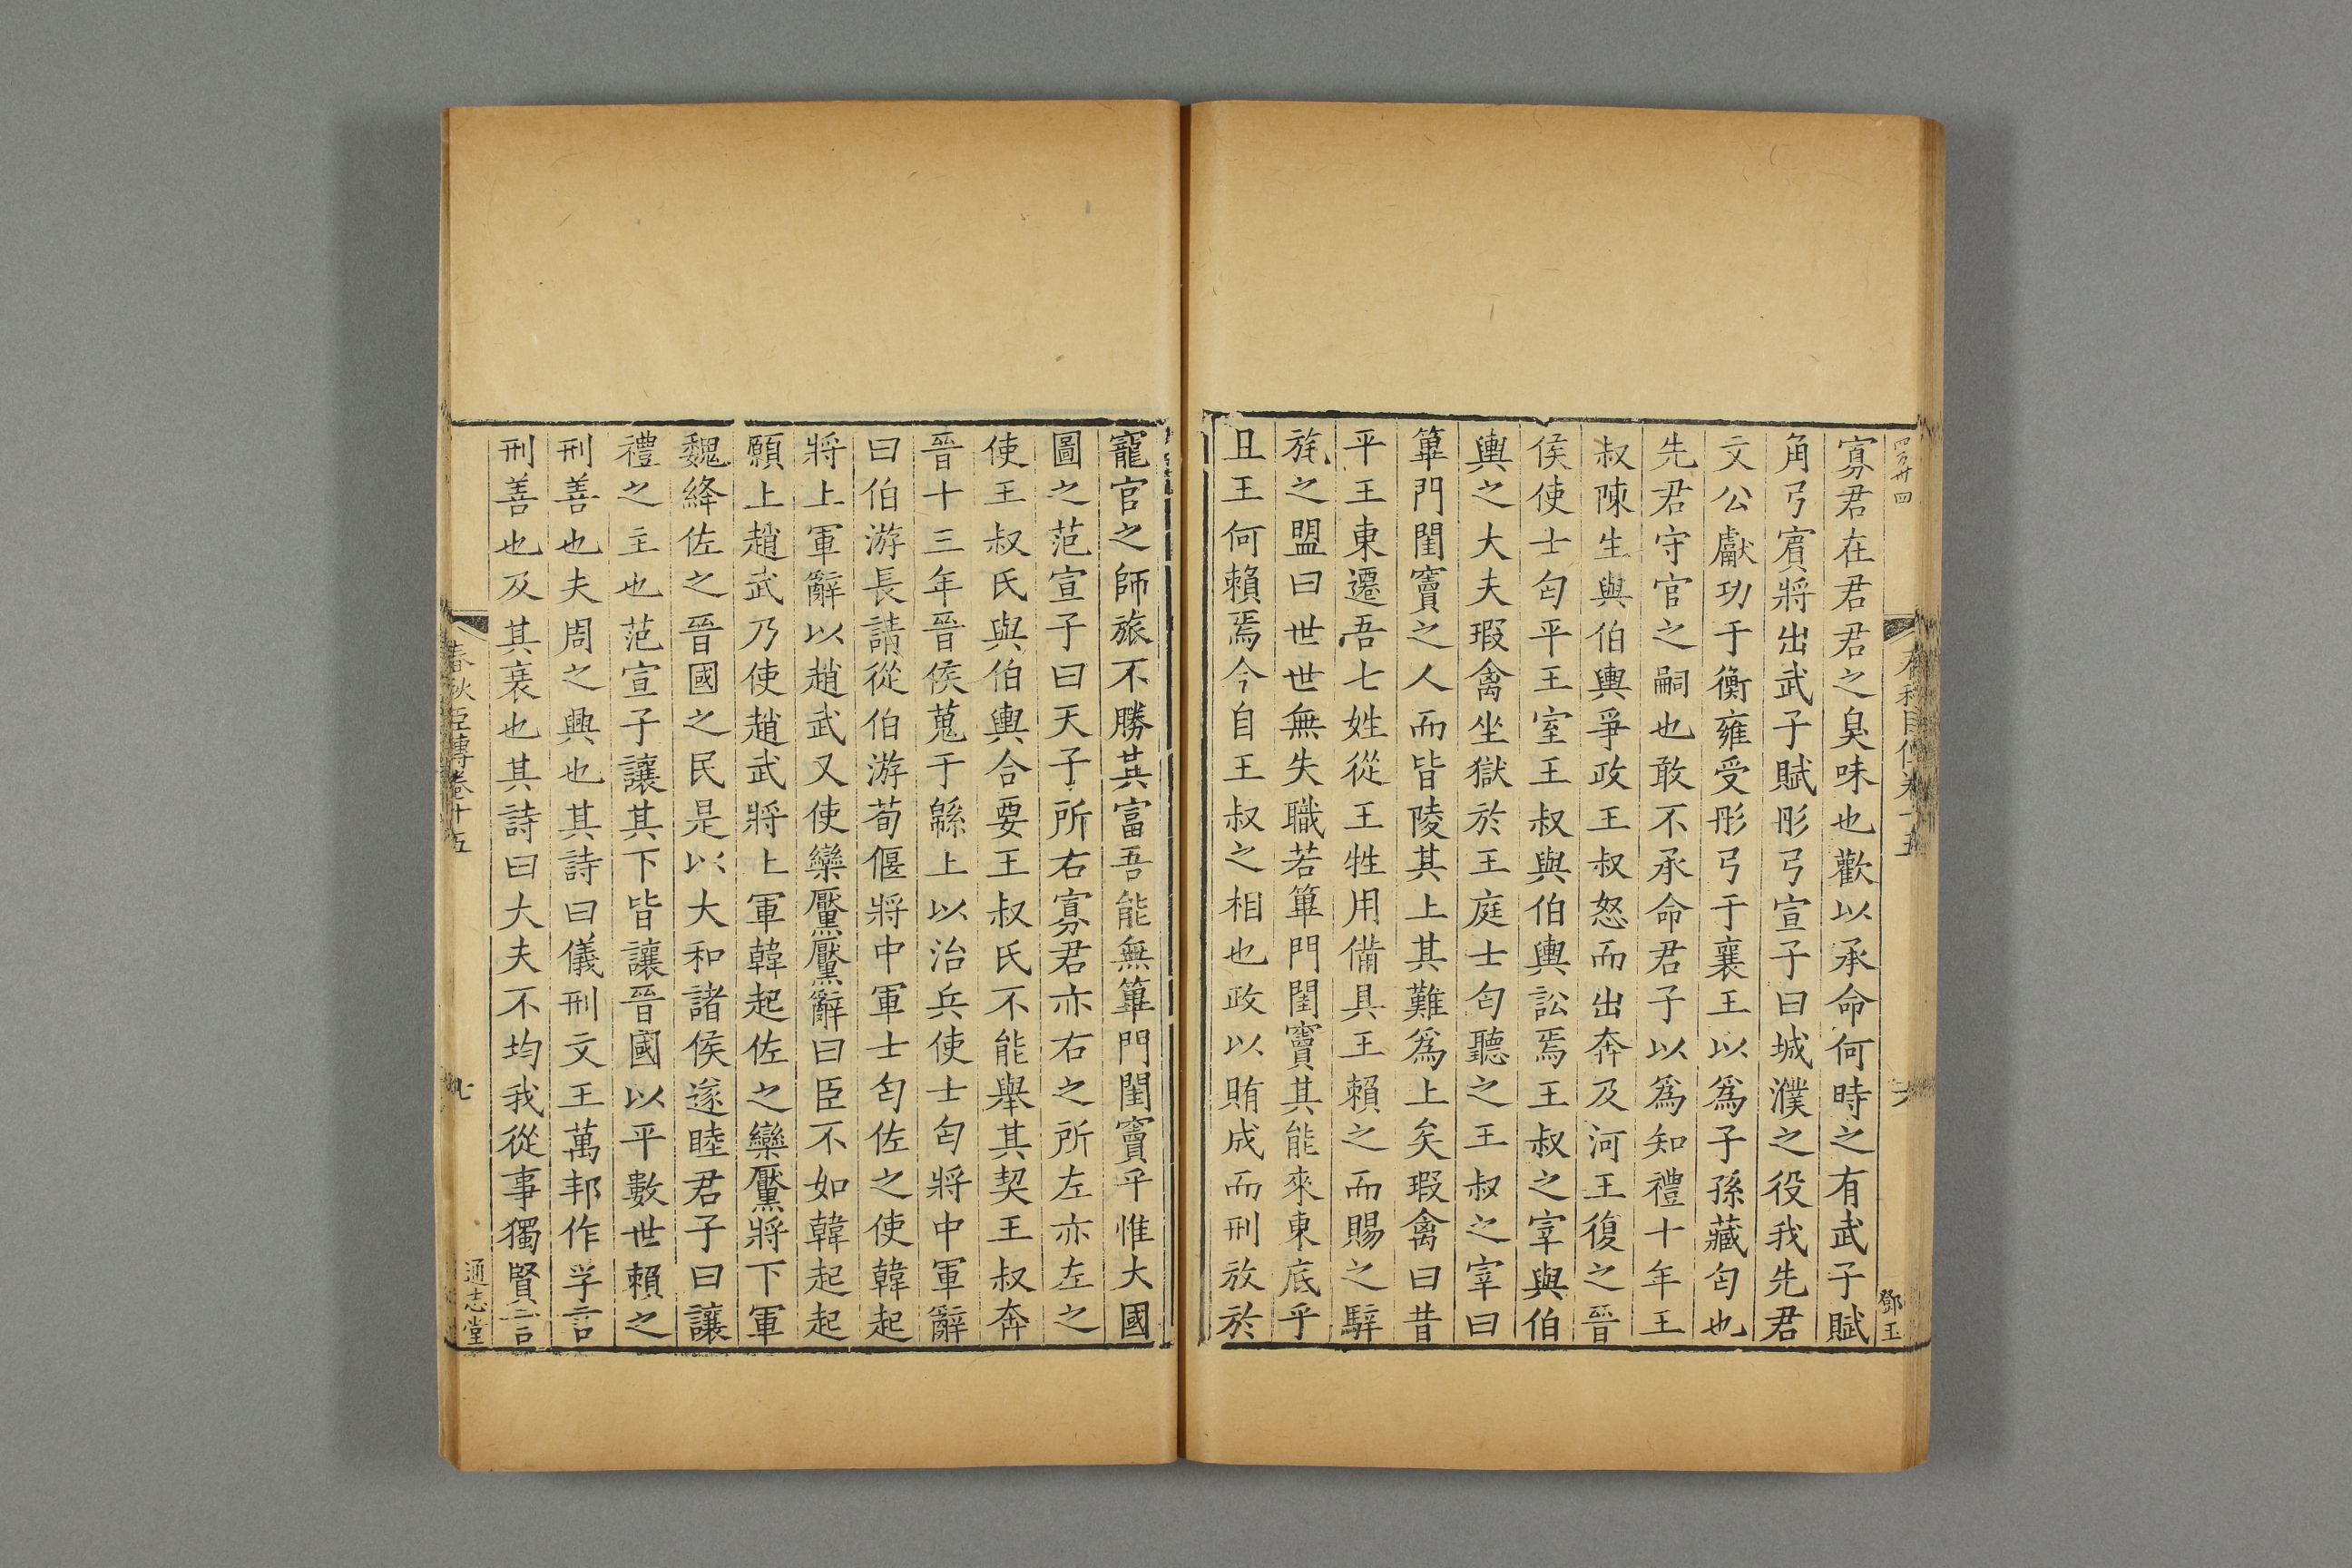 四万廿四
春秋臣傳卷十五
六
鄧玉
寡君在君君之臭味也歡以承命何時之有武子賦
角弓賓將出武子賦彤弓宣子曰城濮之役我先君
文公獻功于衡雍受彤弓于襄王以爲子孫藏匄也
先君守官之嗣也敢不承命君子以爲知禮十年王
叔陳生與伯輿爭政王叔怒而出奔及河王復之晉
侯使士匄平王室王叔與伯輿訟焉王叔之宰與伯
輿之大夫瑕禽坐獄於王庭士匄聽之王叔之宰曰
篳門閨竇之人而皆陵其上其難爲上矣瑕禽曰昔
平王東遷吾七姓從王牲用備具王賴之而賜之騂
旄之盟曰世世無失職若篳門閨竇其能來東底乎
且王何賴焉今自王叔之相也政以賄成而刑放於
寵官之師旅不勝其富吾能無篳門閨竇乎惟大國
圖之范宣子曰天子所右寡君亦右之所左亦左之
使王叔氏與伯輿合要王叔氏不能舉其契王叔奔
晉十三年晉侯蒐于緜上以治兵使士匄將中軍辭
曰伯游長請從伯游荀偃將中軍士匄佐之使韓起
將上軍辭以趙武又使欒黶黶辭曰臣不如韓起起
願上趙武乃使趙武將上軍韓起佐之欒黶將下軍
魏絳佐之晉國之民是以大和諸侯遂睦君子曰讓
禮之主也范宣子讓其下皆讓晉國以平數世賴之
刑善也夫周之興也其詩曰儀刑文王萬邦作孚言
刑善也及其衰也其詩曰大夫不均我從事獨賢言
春秋臣傳卷十五
七
通志堂